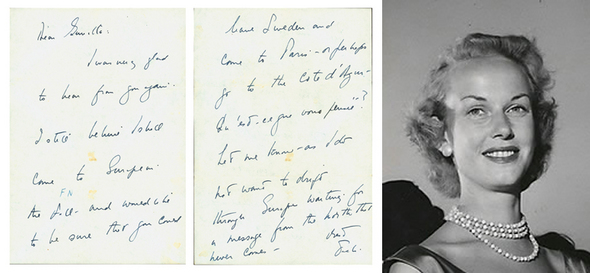 Dear Gunilla:
I was very glad
to hear from you again.
I still believe I shall
come to Europe in
FN
the Fall - and would like
to be sure that you could
leave Sweden and
come to Paris - or perhaps
go to the Cote d'Azur -
Qu'est-ce que vous pensez?
Let me know - as I do
not want to drift
through Europe waiting for
a message from the north that
never comes -